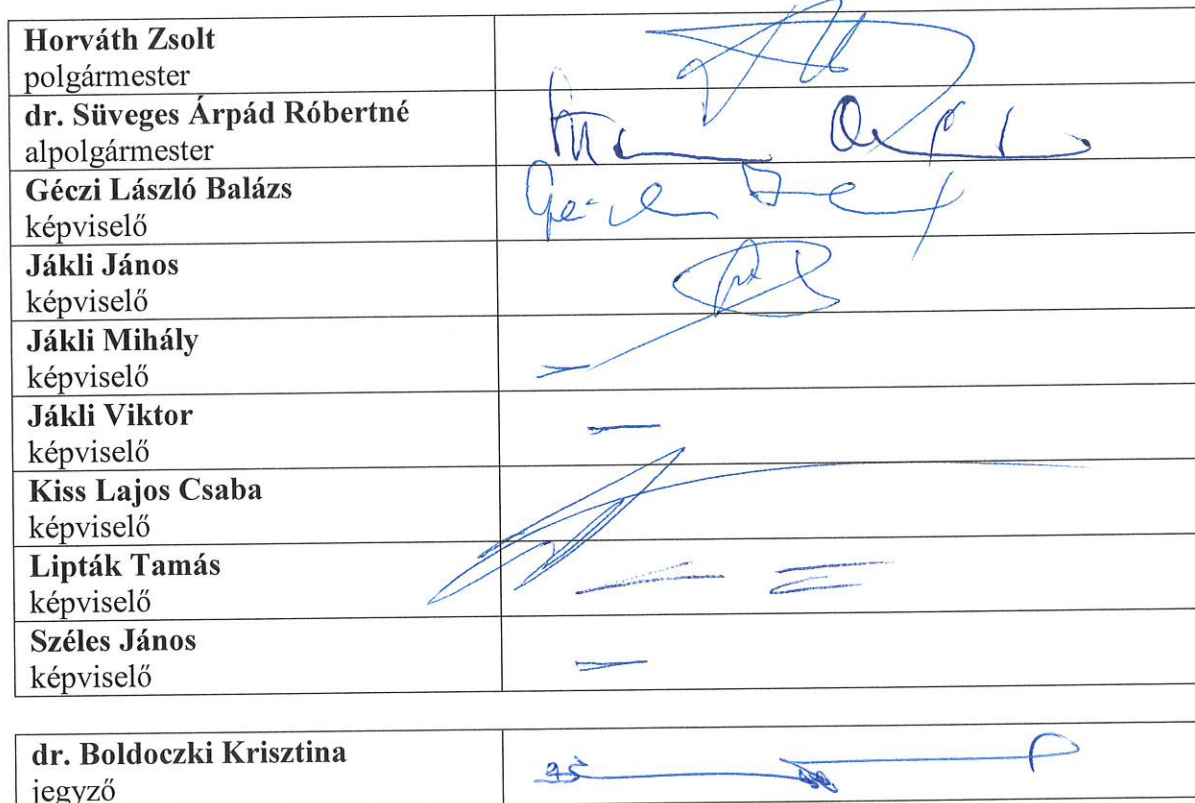 Horváth Zsolt
polgármester
dr. Süveges Árpád Róbertné
alpolgármester
Géczi László Balázs
képviselő
Jákli János
képviselő
Jákli Mihály
képviselő
Jákli Viktor
képviselő
Kiss Lajos Csaba
képviselő
Lipták Tamás
képviselő
Széles János
képviselő
dr. Boldoczki Krisztina
jegyző